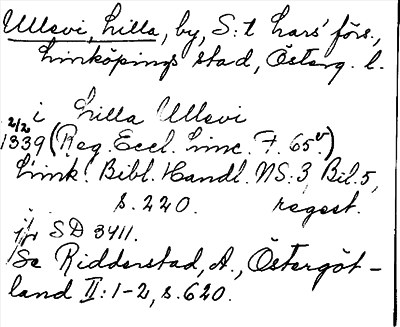 Ullevi, Lilla, by, S:t Lars' förs.,
Linköpings stad, Österg. l.
i Lilla Ullevi
2/2
1339 (Reg. Eccl. Linc. F. 65v.)
Link. Bibl. Handl. NS: 3, Bil. 5,
s. 220. regest.
jfr SD 3411.
Se Ridderstad, A., Östergöt-
land II: 1-2, s. 620.